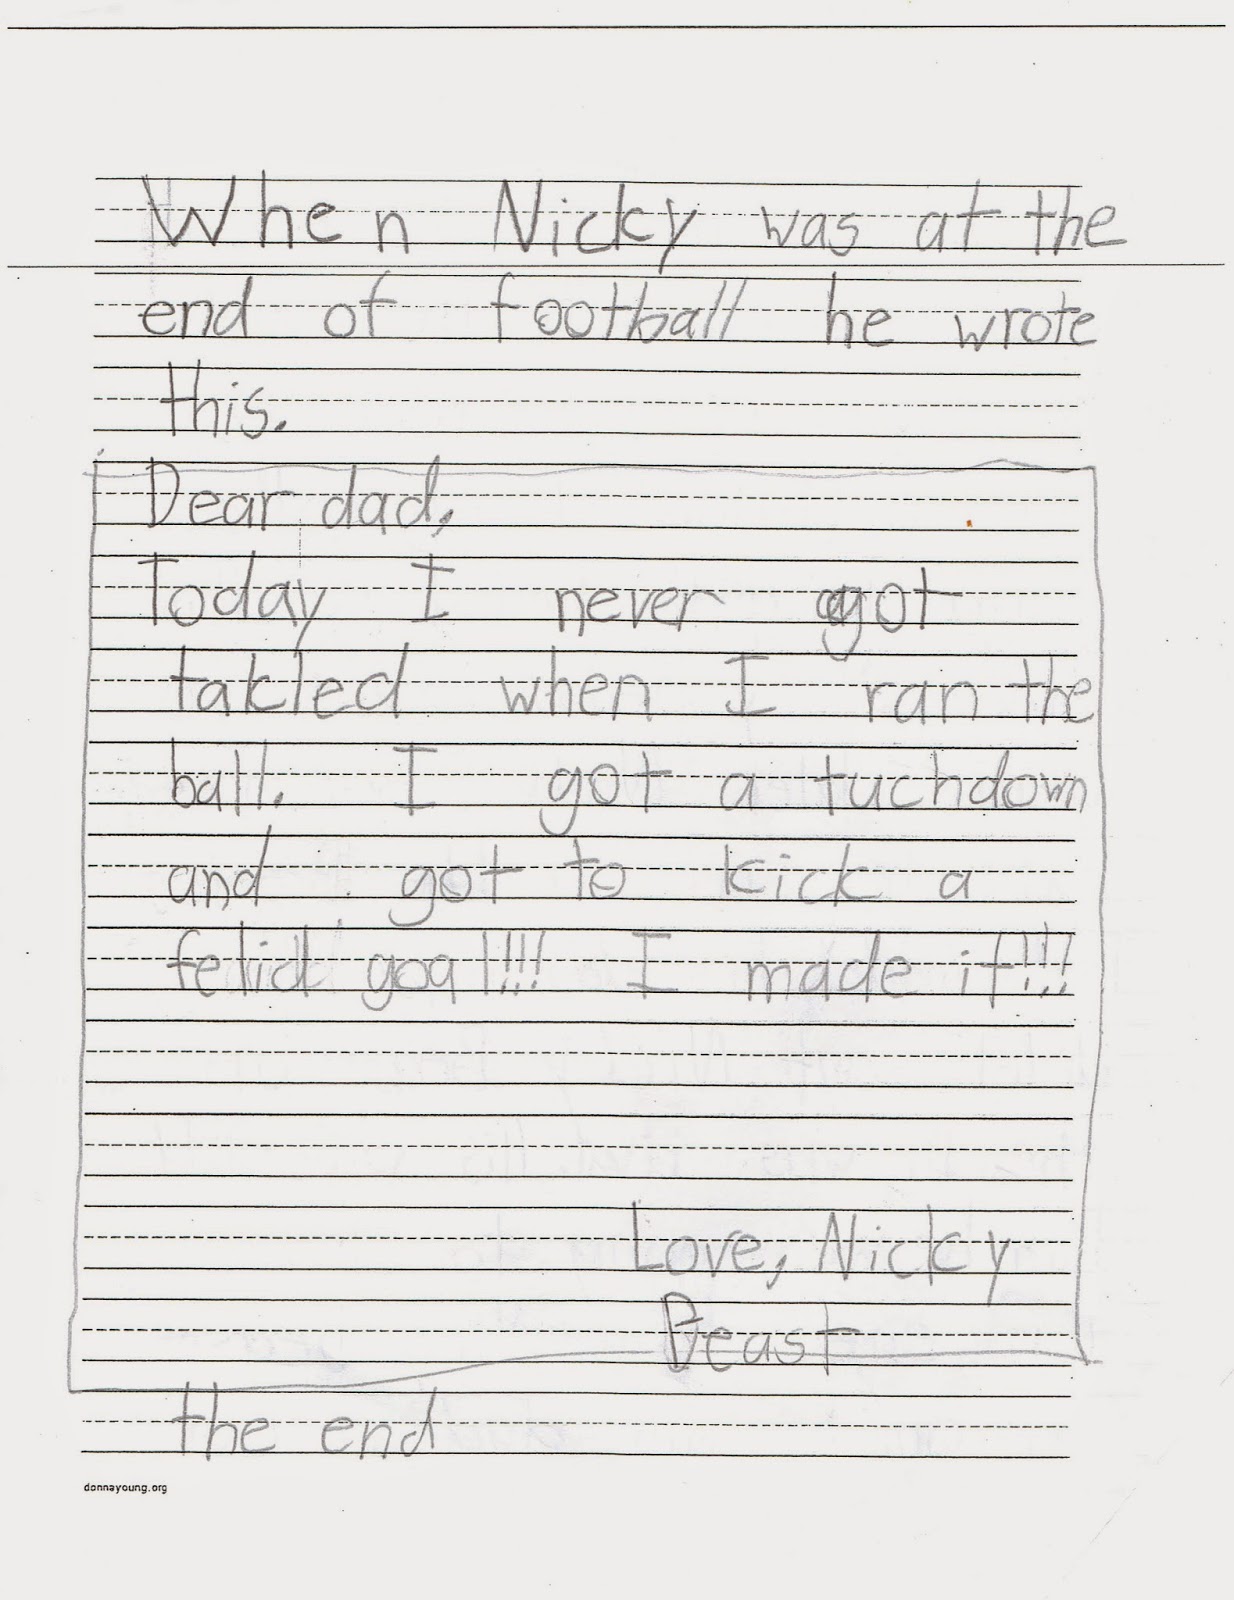 When Nicky was at the
end of football he wrote
this.
Dear dad,
Today I never got
takled when I ran the
ball. I got a tuchdown
and got to kick a
felid goal!!! I made it!!!
Love, Nicky
Beast
the end
donnayoung.org